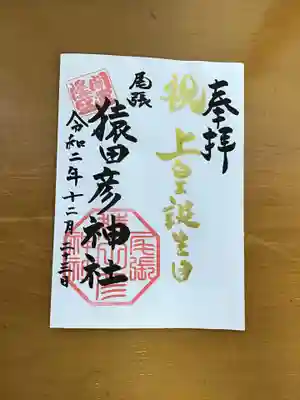 奉拝
祝上皇誕生日
尾張
猿田彦神社
令和二年十二月二十三日